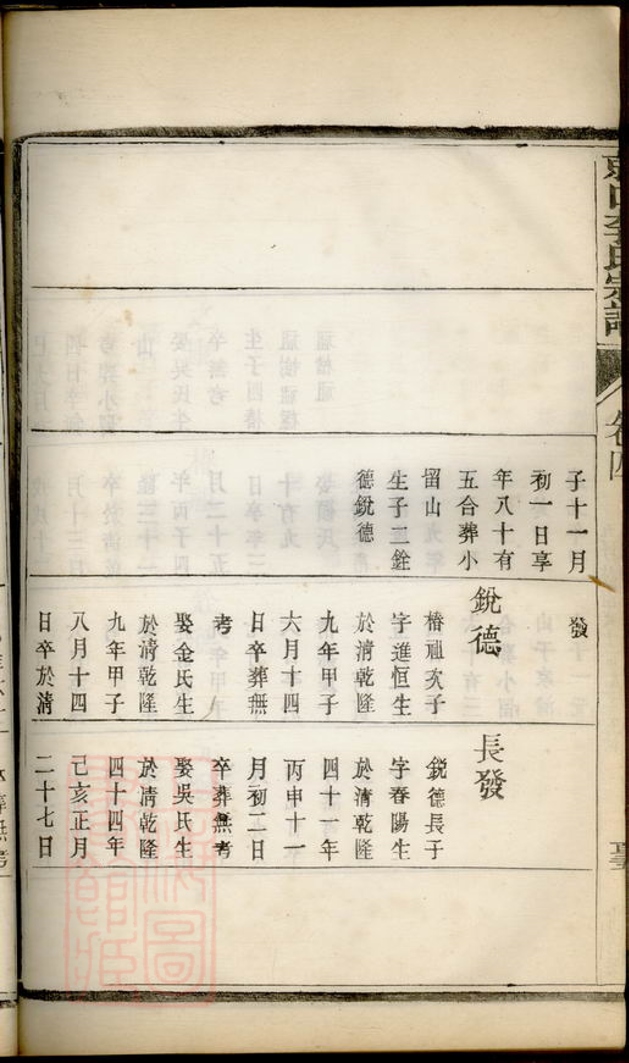 李氏宗譜
卷四
子十一月
初一日享
年八十有
五合葬小
留山
生子二銓
德銳德
發
銳德
椿禎次子
字進恒生
於清乾隆
九年甲子
六月十四
日卒葬無
考
娶金氏生
於清乾隆
九年甲子
八月十四
日卒於清
長發
銳德長子
字春陽生
於清乾隆
四十一年
丙申十一
月初二日
卒葬無考
娶吳氏生
於清乾隆
四十四年
己亥正月
二十七日